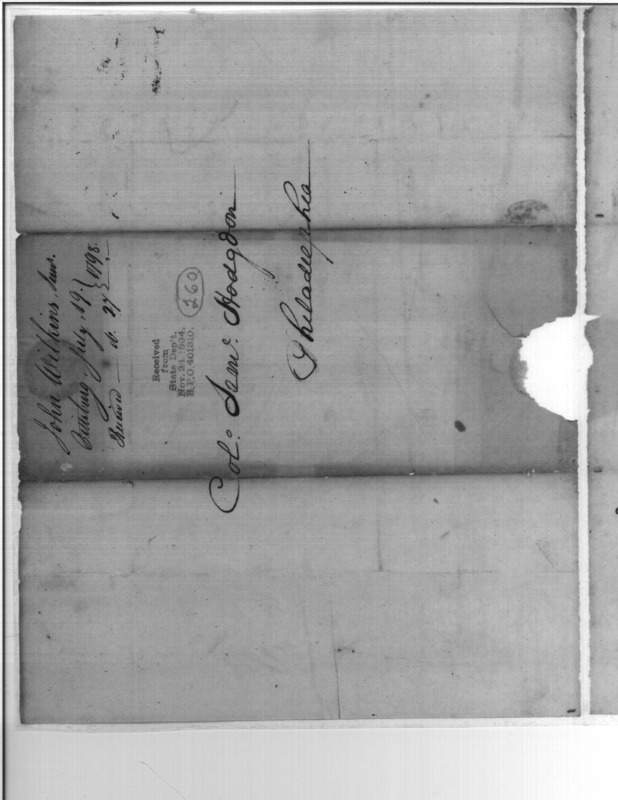 John Wilkins, Junr.
Pittsburg July 19.
Received do. 27
1798.
260
Received
from
State Dep't.
Nov. 24, 1894.
R.P.O. 401310.
Col: Saml. Hodgdon
Philadelphia